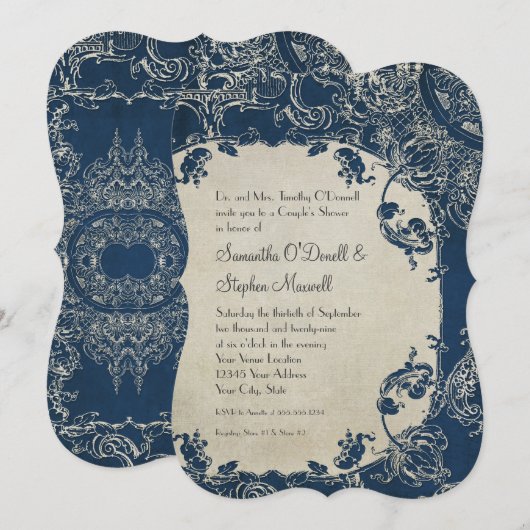 Dr. and Mrs. Timothy O'Donnell
invite you to a Couple's Shower
in honor of
Samantha O'Donell &
Stephen Maxwell
Saturday the thirtieth of September
two thousand and twenty-nine
at six o'clock in the evening
Your Venue Location
12345 Your Address
Your City, State
RSVP to Annette at 555.555.1234
Registry: Store #1 & Store #2